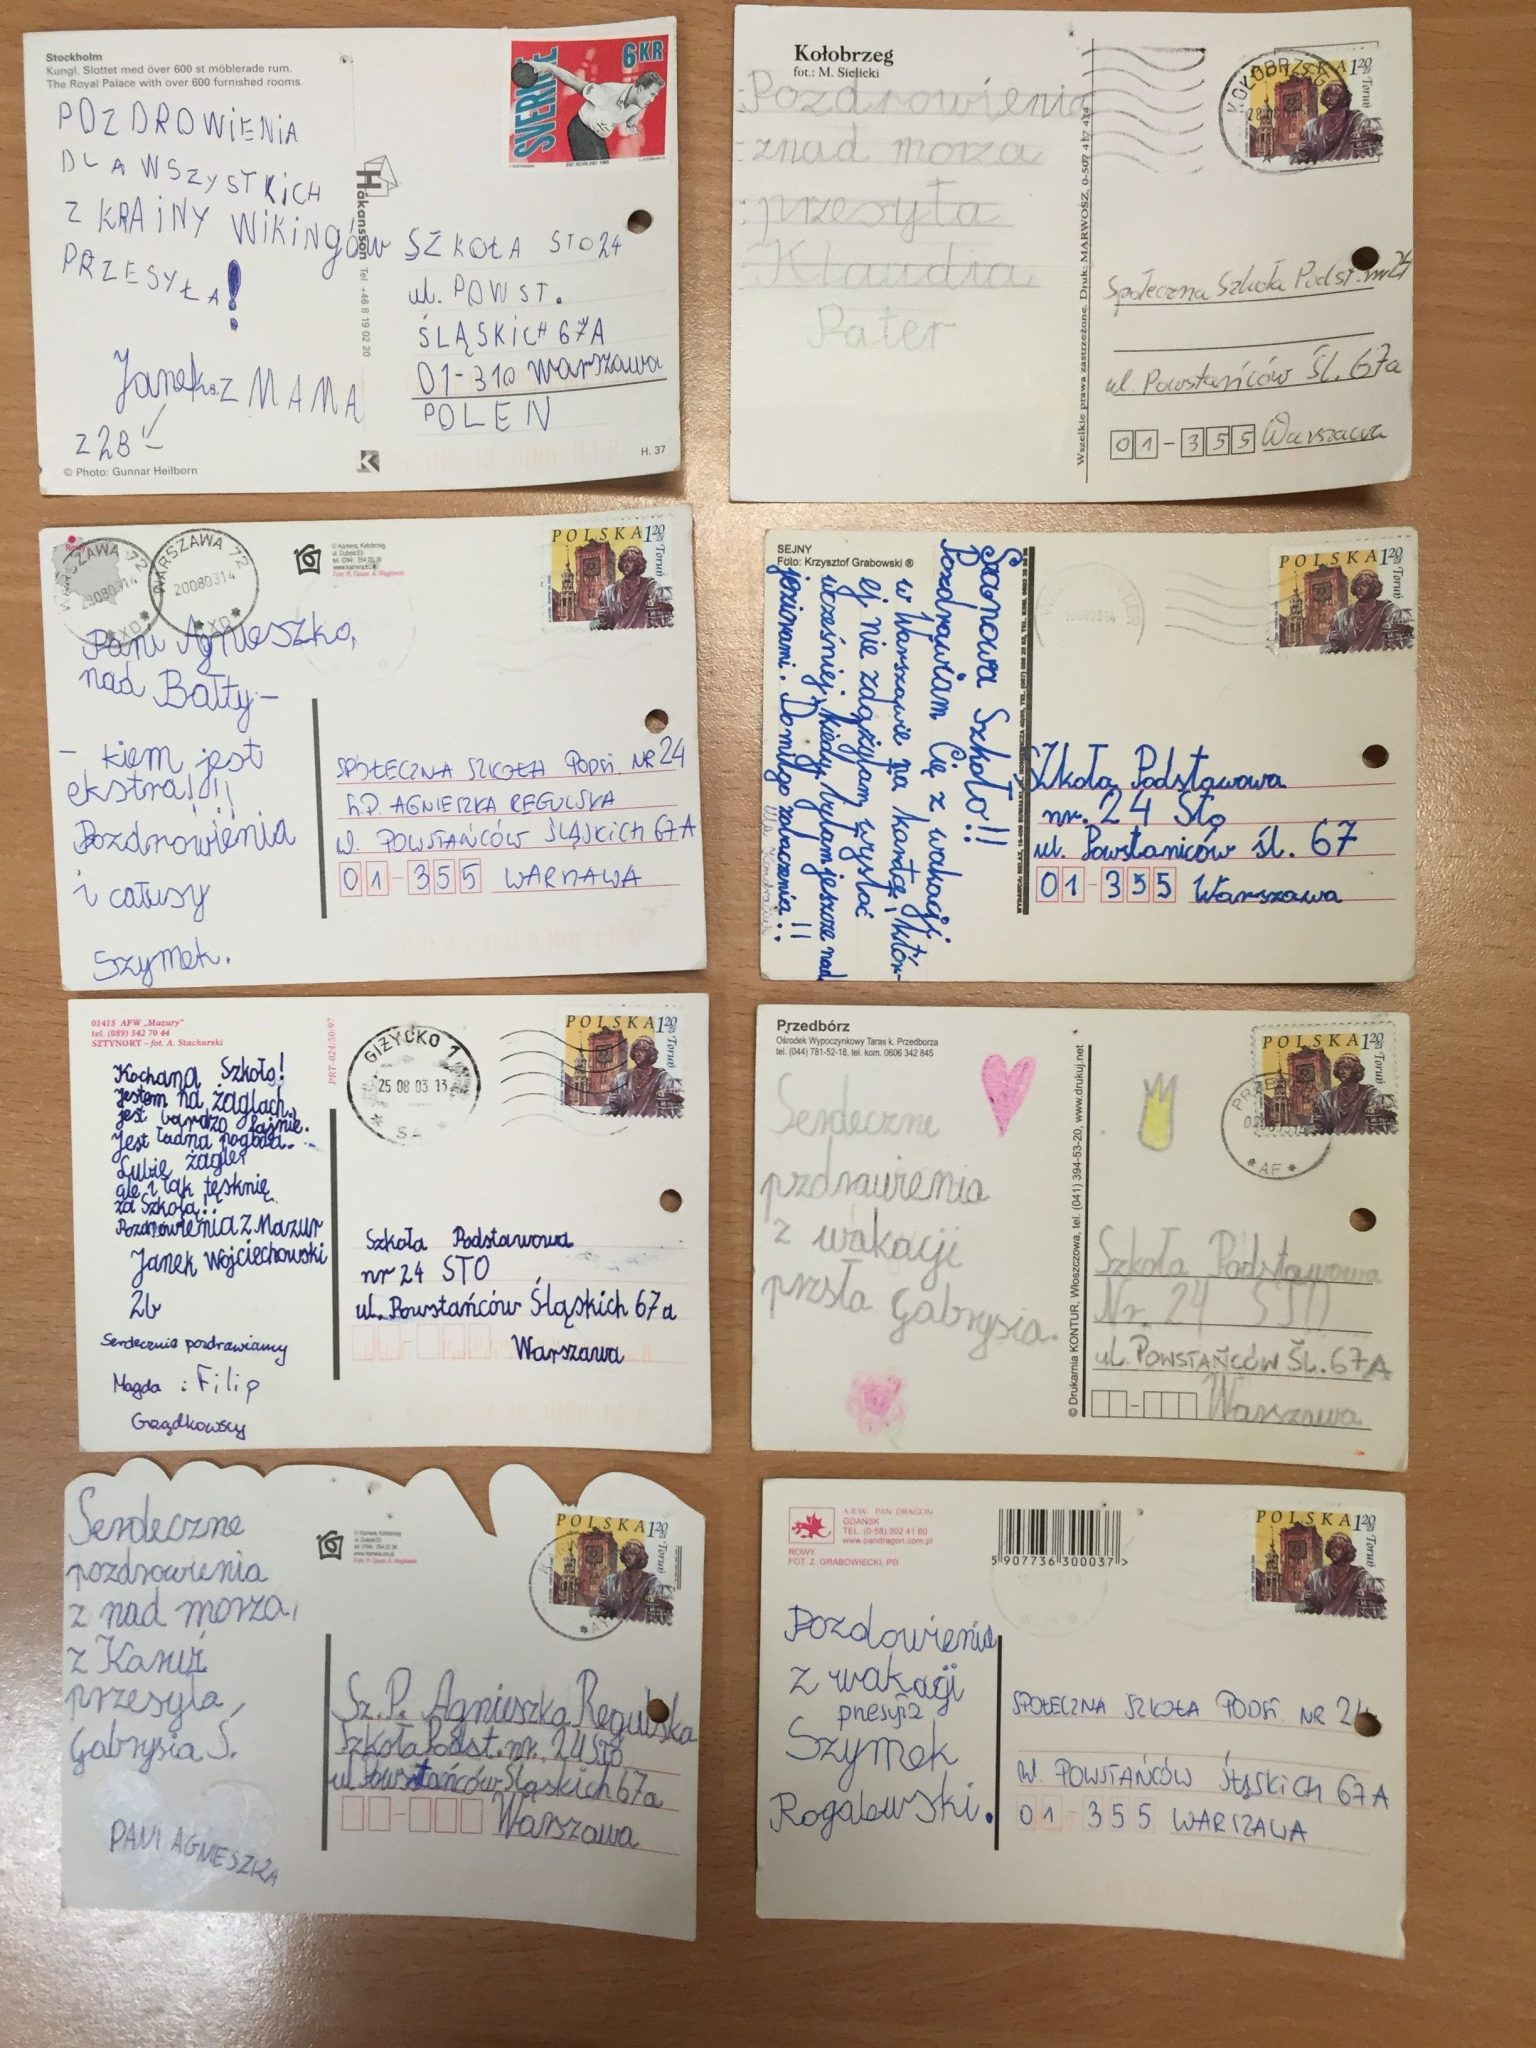 Stockholm
Kungl. Slottet med över 600 st möblerade rum.
The Royal Palace with over 600 furnished rooms.
POZDROWiENiA
DLA WSZYSTKiCH
Z KRAiNY WiKiNGÓW
PRZESYŁA!
Janek z MAMĄ
z 2B
© Photo: Gunnar Heilborn
Håkansson Tel +46 8 19 02 20
SVERIGE 6KR
SZKOŁA STO 24
ul. POWST.
ŚLĄSKiCH 67A
01-310 Warszawa
POLEN
H. 37
Kołobrzeg
fot.: M. Sielicki
Pozdrowienia
znad morza
przesyła
Klaudia
Pater
Wszelkie prawa zastrzeżone. Druk: MARWOSZ, 0-507 417 414
KOŁOBRZEG
POLSKA 1,20
Toruń
Społeczna Szkoła Podst. nr 24
ul. Powstańców Śl. 67a
01-355 Warszawa
Rowy
WARSZAWA 72
20080314
*XD*
WARSZAWA 72
20080314
*XD*
© Kamera, Kołobrzeg
POLSKA 1,20
Toruń
Pani Agnieszko,
nad Bałty-
- kiem jest
ekstra!!!
Pozdrowienia
i całusy
Szymek.
SPOŁECZNA SZKOŁA PODST. NR 24
AGNIESZKA REGULSKA
ul. POWSTAŃCÓW ŚLĄSKICH 67A
01-355 WARSZAWA
SEJNY
Foto: Krzysztof Grabowski ®
Szanowa Szkoło!!
Pozdrawiam Cię z wakacji
w Warszawie na kartce, któr-
ej nie zdążyłam wysłać
wcześniej, kiedy byłam jeszcze nad
jeziorami. Do miłego zobaczenia!!
POLSKA 1,20
Toruń
Szkoła Podstawowa
nr. 24 Sto
ul. Powstaniców śl. 67
01-355 Warszawa
01415 AFW „Mazury"
tel. (089) 542 70 44
SZTYNORT – fot. A. Stachurski
PRT-024/50/97
Kochana Szkoło!
Jestem na żaglach.
jest bardzo fajnie.
Jest ładna pogoda.
Lubię żagle
ale i tak tęsknię
za Szkołą!!
Pozdrowienia z Mazur
Janek Wojciechowski
2b
Serdecznie pozdrawiamy
Magda i Filip
Grządkowscy
GIŻYCKO 1
25 08 03 13
* SA *
POLSKA 1,20
Toruń
Szkoła Podstawowa
nr 24 STO
ul. Powstańców Śląskich 67a
Warszawa
Przedbórz
Ośrodek Wypoczynkowy Taras k. Przedborza
tel. (044) 781-52-18, tel. kom. 0606 342 845
Serdeczne
pzdrawienia
z wakacji
przsła Gabrysia.
© Drukarnia KONTUR, Włoszczowa, tel. (041) 394-53-20, www.drukuj.net
*AF*
POLSKA 1,20
Toruń
Szkoła Podstawowa
Nr. 24 STO
ul. POWSTAŃCÓW ŚL. 67A
Warszawa
Serdeczne
pozdrowienia
z nad morza,
z Karwi
przesyła
Gabrysia Ś.
PANI AGNIESZKA
© Kamera, Kołobrzeg
POLSKA 1,20
Toruń
Sz. P. Agnieszka Regulska
Szkoła Podst. nr. 24 Sto
ul. Powstańców Śląskich 67a
Warszawa
A.R.W. PAN DRAGON
GDAŃSK
TEL. (0-58) 302 41 60
www.pandragon.com.pl
ROWY
FOT. Z. GRABOWIECKI, PD
5 907736 300037 >
POLSKA 1,20
Toruń
Pozdowienia
z wakagi
przesyła
Szymek
Rogalewski.
SPOŁECZNA SZKOŁA PODST. NR 24
ul. POWSTAŃCÓW ŚLĄSKiCH 67A
01 355 WARSZAWA